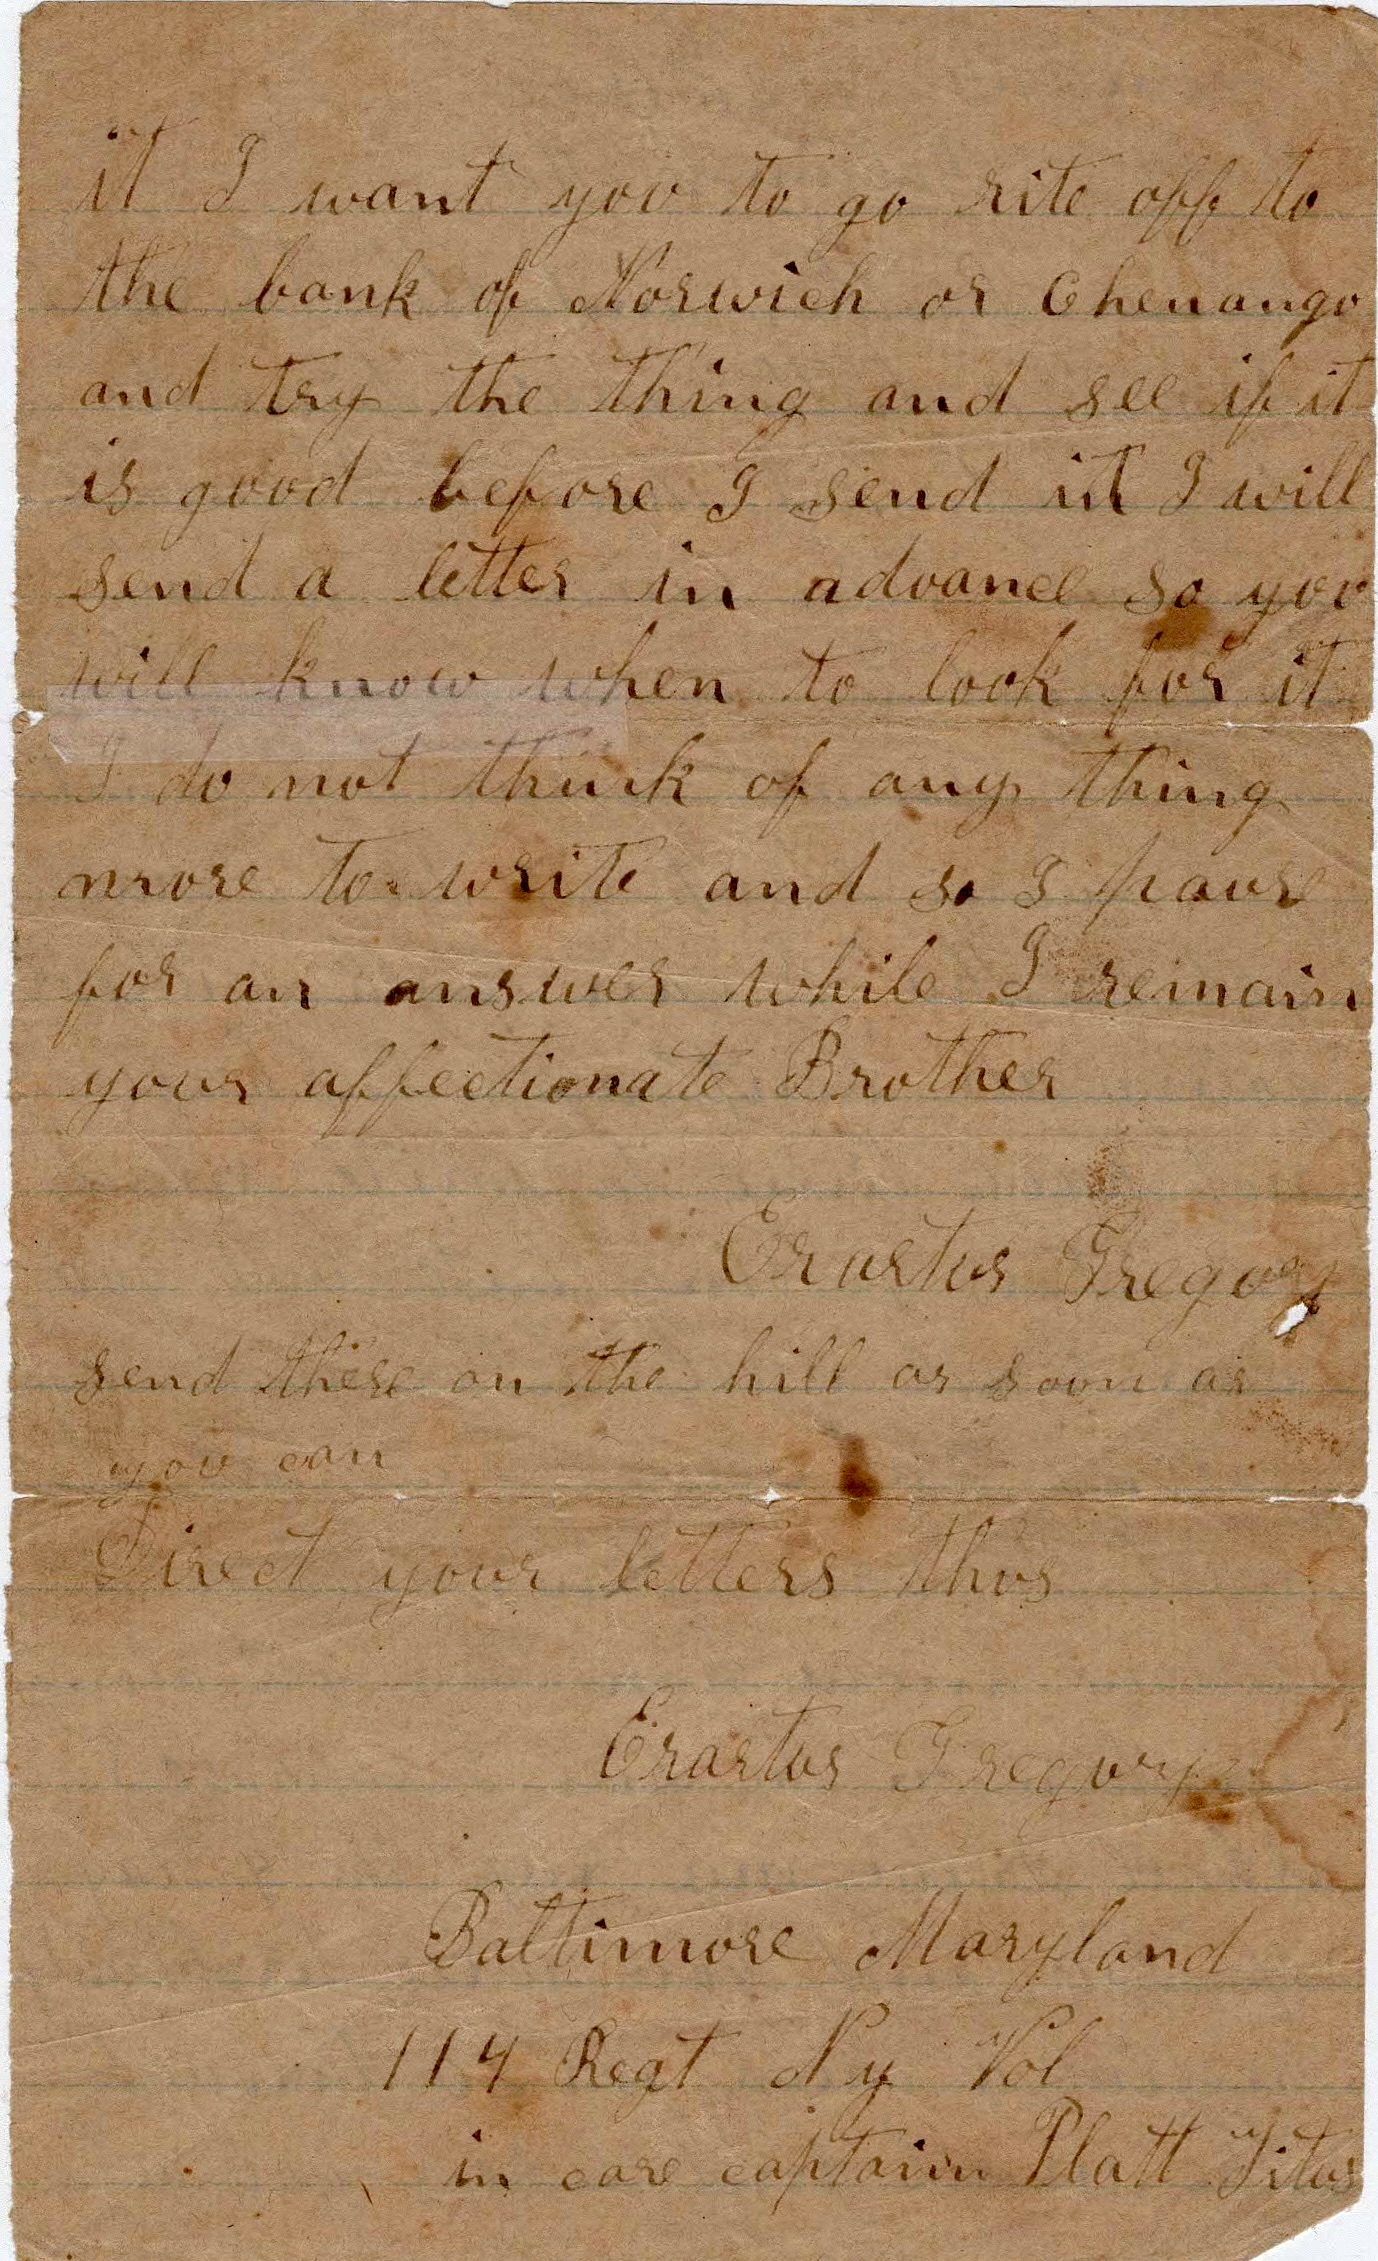 it I want you to go rite off to
the bank of Norwich or Chenango
and try the thing and see if it
is good before I send it I will
send a letter in advance so you
will know when to look for it
I do not think of any thing
more to write and so I pause
for an answer while I remain
your affectionate Brother
Erastus Gregory
send these on the hill as soon as
you can
Direct your letters thus
Erastus Gregory
Baltimore Maryland
114 Regt Ny Vol
in care captain Platt Titus